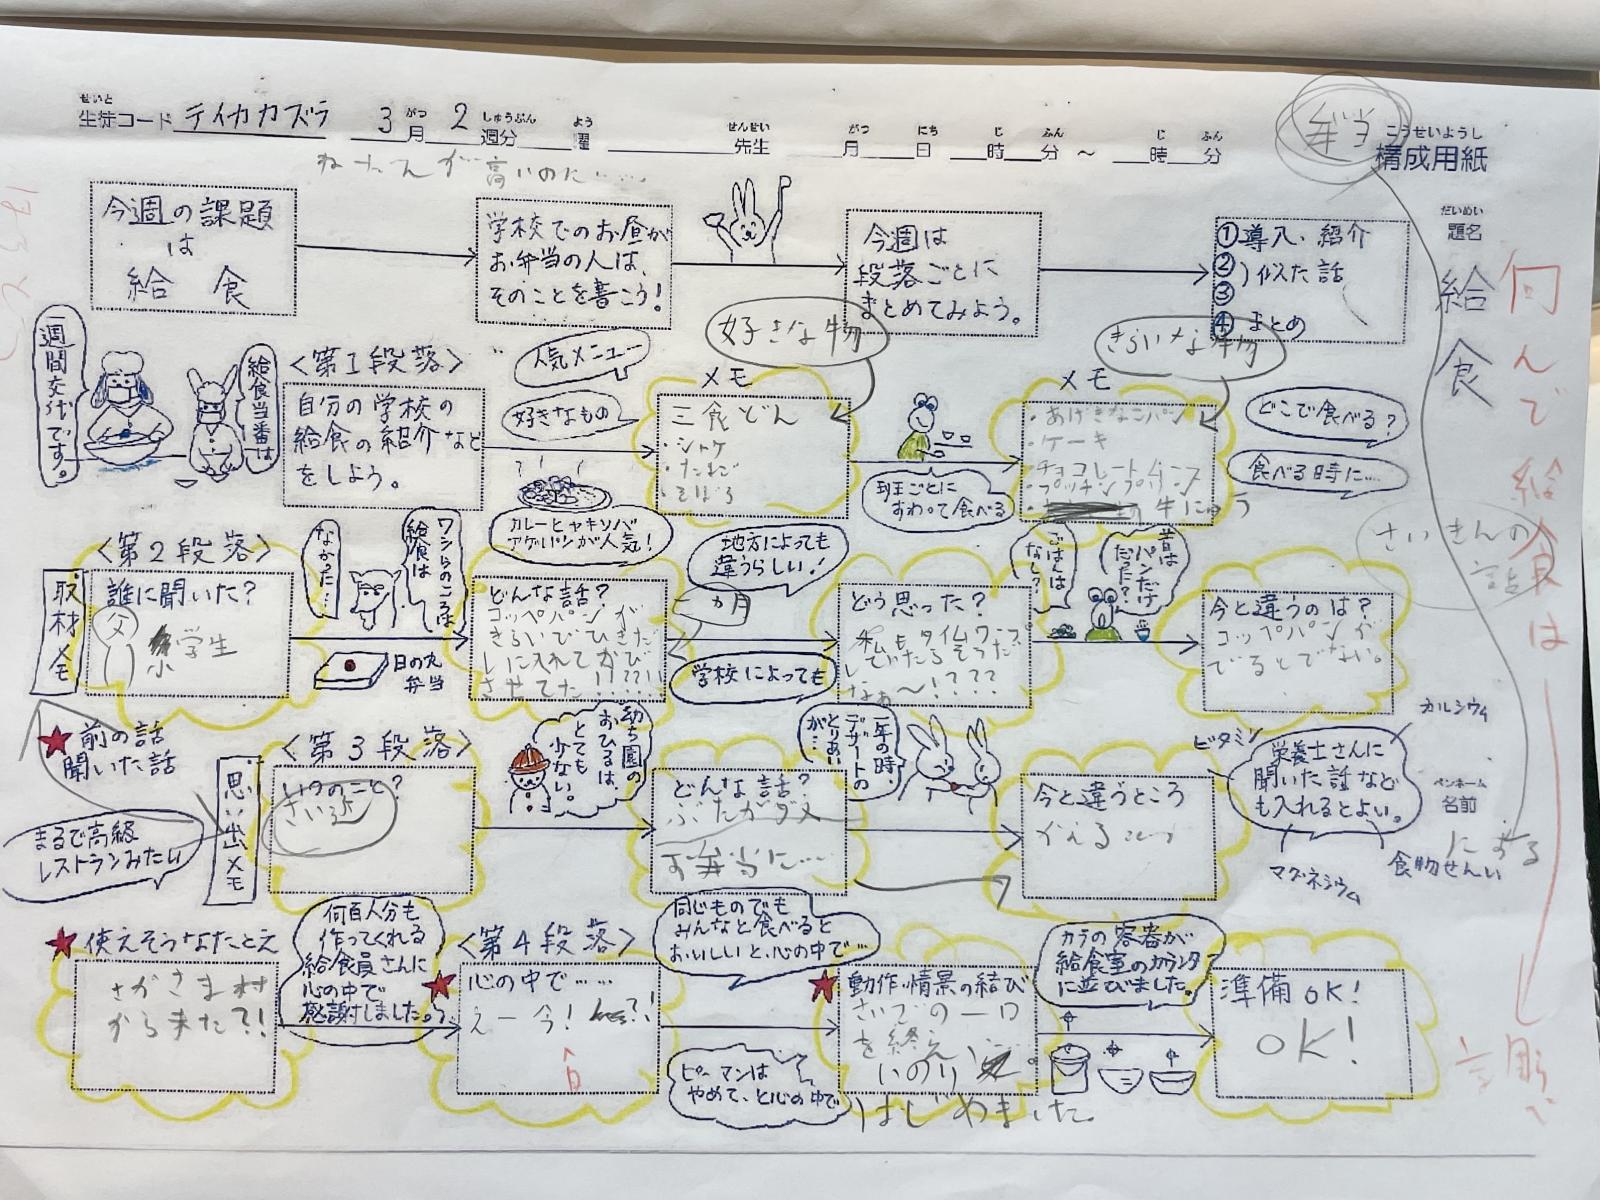 せいと
生徒コード テイカカズラ 3月 2週分 曜 先生 月 日 時 分 〜 時 分
がつ しゅうぶん よう せんせい がつ にち じ ふん じ ふん
こうせいようし
構成用紙
弁当
が高いのに……
だいめい
題名
給食
何んで給食は
今週の課題
は
給 食
学校でのお昼が
お弁当の人は、
そのことを書こう!
今週は
段落ごとに
まとめてみよう。
①導入、紹介
②)似た話
③
④まとめ
一週間交代です。
給食当番は
<第1段落>
自分の学校の
給食の紹介など
をしよう。
人気メニュー
好きなもの
カレーヒャキソバ
アゲパンが人気!
好きな物
メモ
三食どん
・シャケ
・たまご
・そぼろ
班ごとに
すわって食べる
きらいな物
メモ
・あげきなこパン
・ケーキ
・チョコレートムース
・プッチンプリン
牛にゅう
どこで食べる?
食べる時に……
さいきんの
話
<第2段落>
取材メモ
誰に聞いた?
父
小学生
なかった…
ワシらのころは
給食は
日の丸
弁当
どんな話?
コッペパンが
きらいでひきだ
しに入れてかび
させてた!????!!
二ヵ月
地方によっても
違うらしい!
学校によっても
どう思った?
私もタイムワープ
していたらそうだ
なぁ〜!????
ごはんは
なし?
昔は
パンだけ
だった?
今と違うのは?
コッペパンが
でるとでない。
★前の話
聞いた話
まるで高級
レストランみたい
<第3段落>
思い出メモ
いつのこと?
さい近
幼ち園の
おひるは、
とても
少ない。
どんな話?
ぶたがダメ
お弁当に…
一年の時、
デザートの
とりあい
が…
今と違うところ
かえるこつ
ビタミン
カルシウム
栄養士さんに
聞いた話など
も入れるとよい。
マグネシウム
食物せんい
ペンネーム
名前
★使えそうなたとえ
さかさま村
から来た?!
何百人分も
作ってくれる
給食員さんに
心の中で
感謝しました。
<第4段落>
★心の中で……
えー今!
同じものでも
みんなと食べると
おいしいと、心の中で…
ピーマンは
やめて、と心の中で
★動作・情景の結び
さいごの一口
を終え、
いのり
はじめました。
カラの容器が
給食室のカウンタ
に並びました。
準備OK!
OK!